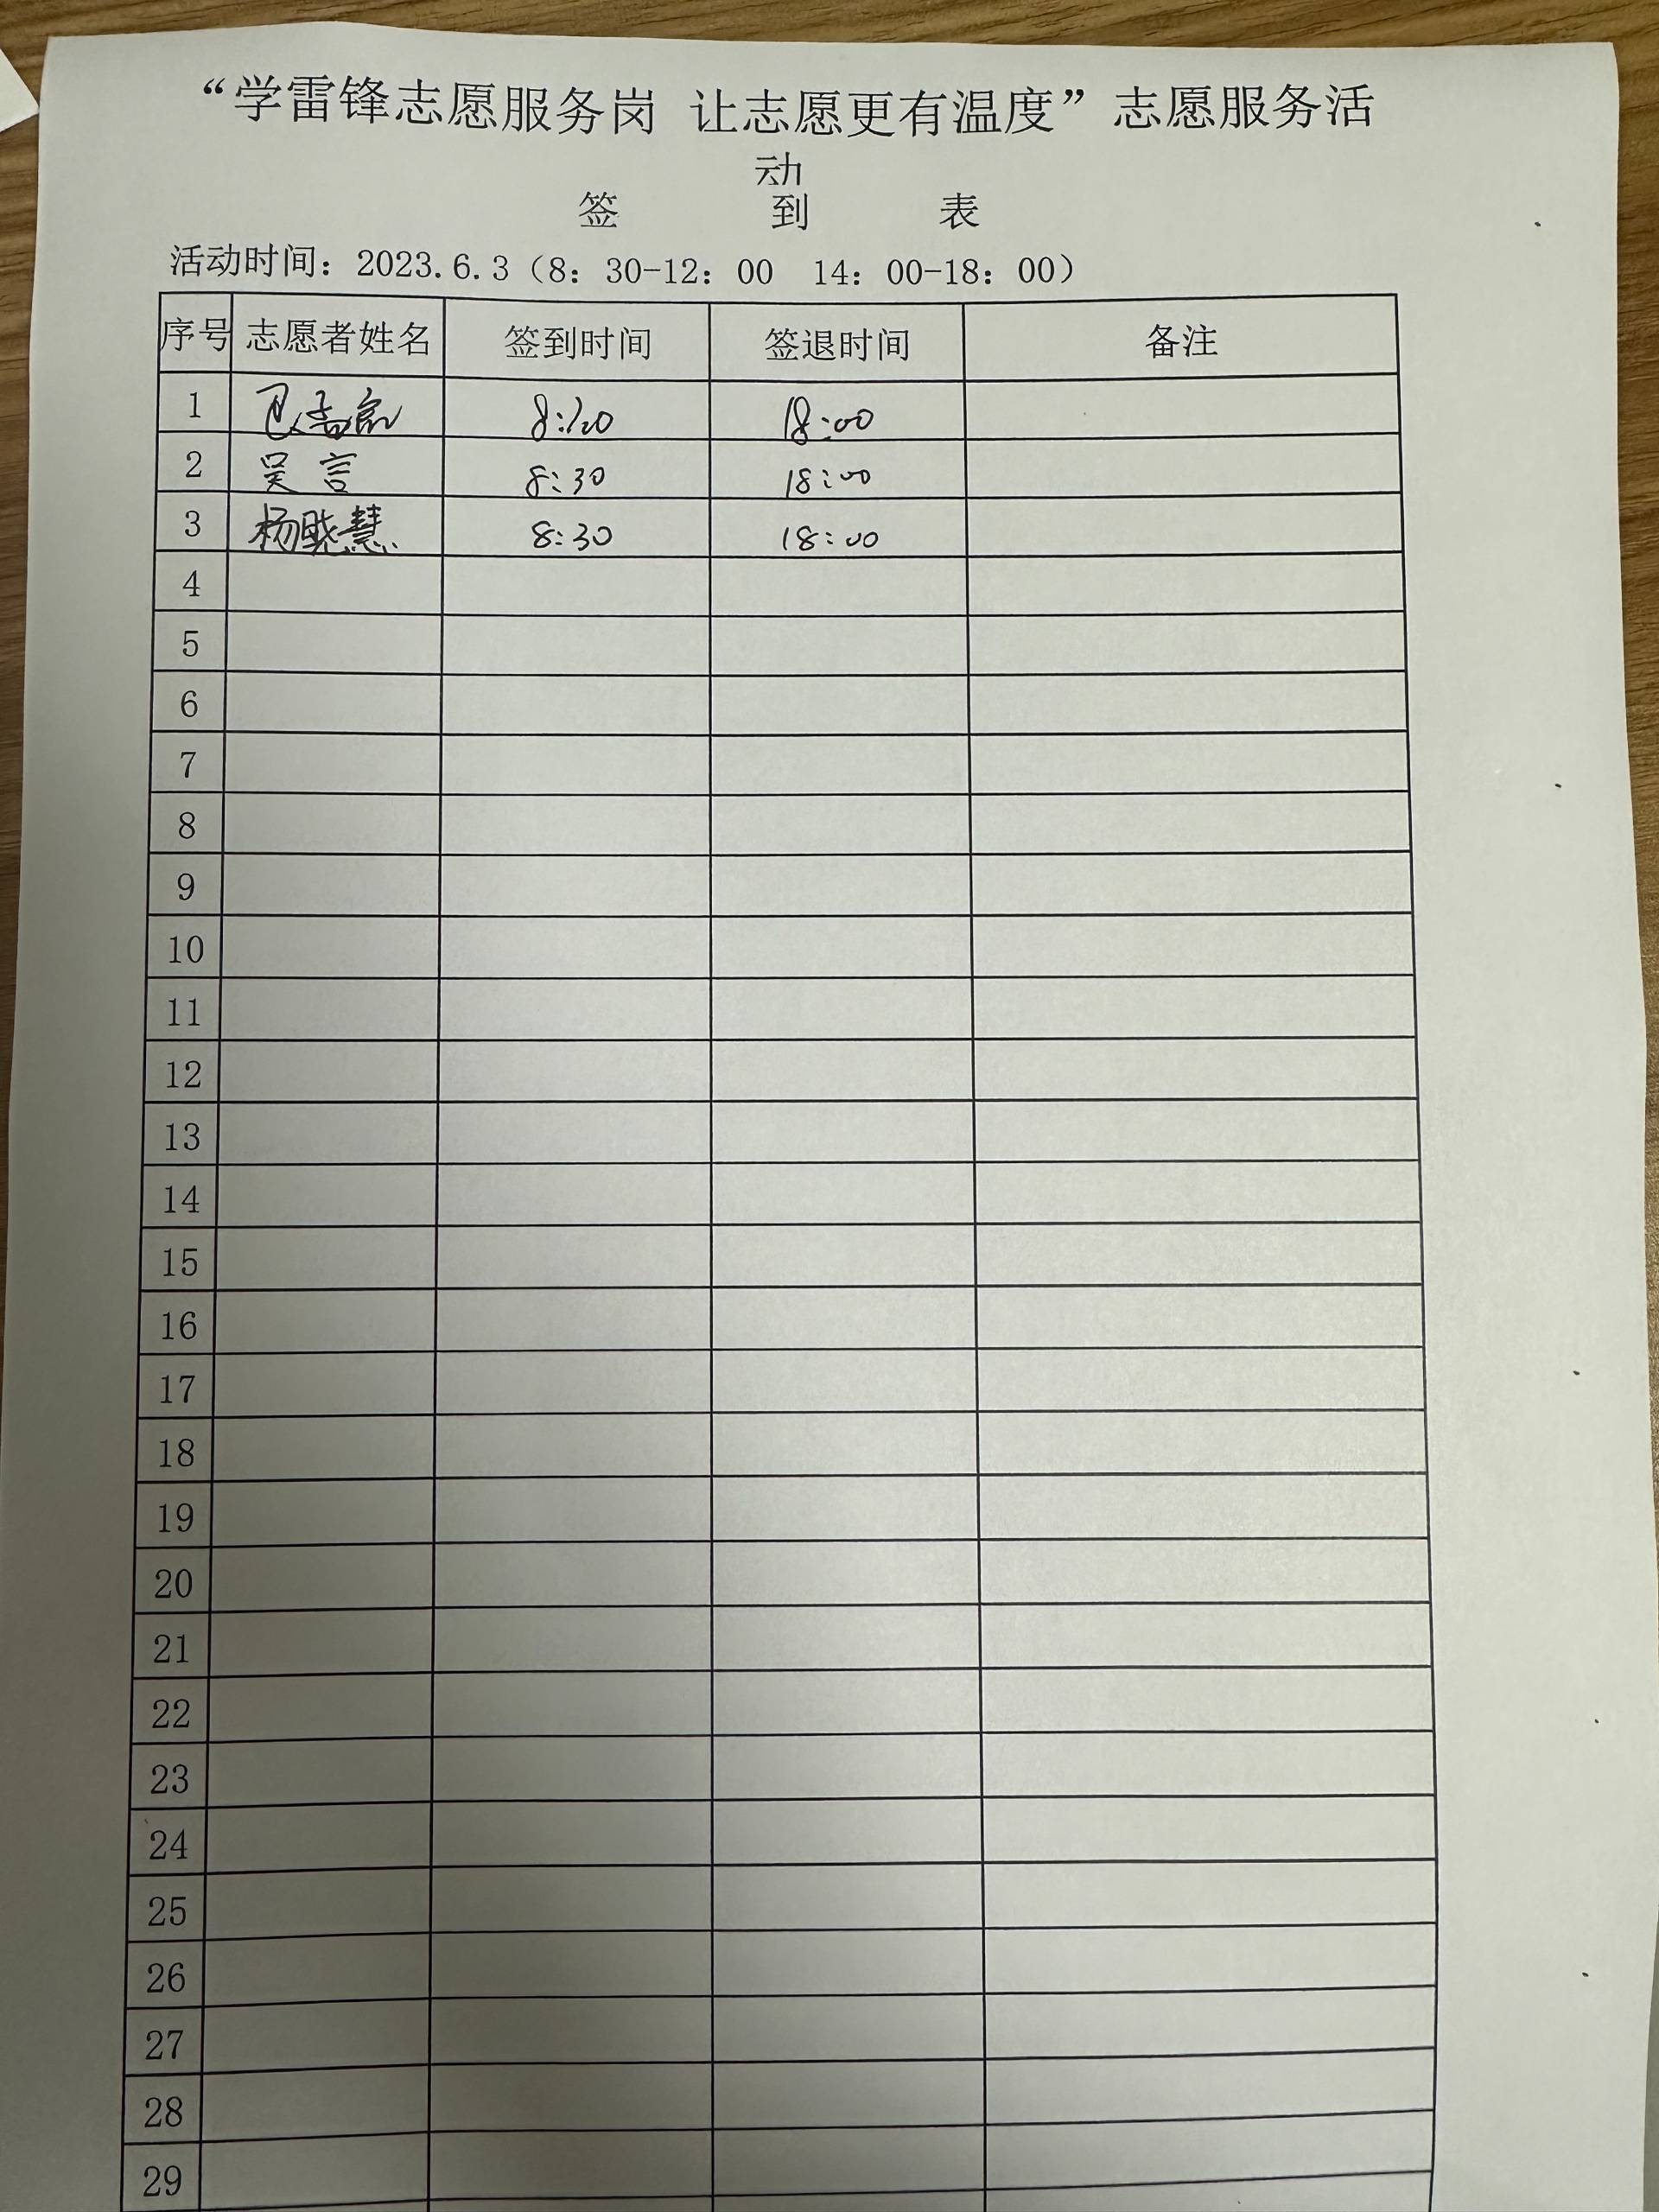 “学雷锋志愿服务岗 让志愿更有温度”志愿服务活
动
签 到 表
活动时间：2023.6.3（8：30-12：00 14：00-18：00）
序号 志愿者姓名 签到时间 签退时间 备注
1 8:20 18:00
2 吴言 8:30 18:00
3 杨晓慧 8:30 18:00
4
5
6
7
8
9
10
11
12
13
14
15
16
17
18
19
20
21
22
23
24
25
26
27
28
29